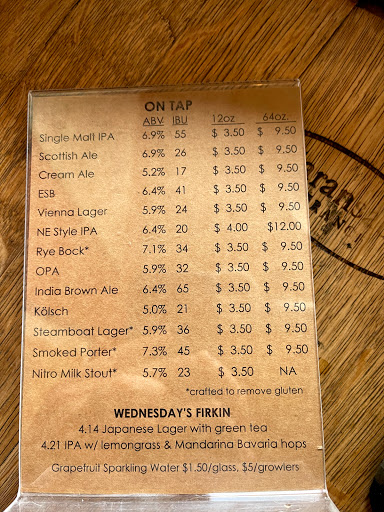 ON TAP
ABV IBU 12oz 64oz.
Single Malt IPA 6.9% 55 $ 3.50 $ 9.50
Scottish Ale 6.9% 26 $ 3.50 $ 9.50
Cream Ale 5.2% 17 $ 3.50 $ 9.50
ESB 6.4% 41 $ 3.50 $ 9.50
Vienna Lager 5.9% 24 $ 3.50 $ 9.50
NE Style IPA 6.4% 20 $ 4.00 $12.00
Rye Bock* 7.1% 34 $ 3.50 $ 9.50
OPA 5.9% 32 $ 3.50 $ 9.50
India Brown Ale 6.4% 65 $ 3.50 $ 9.50
Kölsch 5.0% 21 $ 3.50 $ 9.50
Steamboat Lager* 5.9% 36 $ 3.50 $ 9.50
Smoked Porter* 7.3% 45 $ 3.50 $ 9.50
Nitro Milk Stout* 5.7% 23 $ 3.50 NA
*crafted to remove gluten
WEDNESDAY'S FIRKIN
4.14 Japanese Lager with green tea
4.21 IPA w/ lemongrass & Mandarina Bavaria hops
Grapefruit Sparkling Water $1.50/glass, $5/growlers